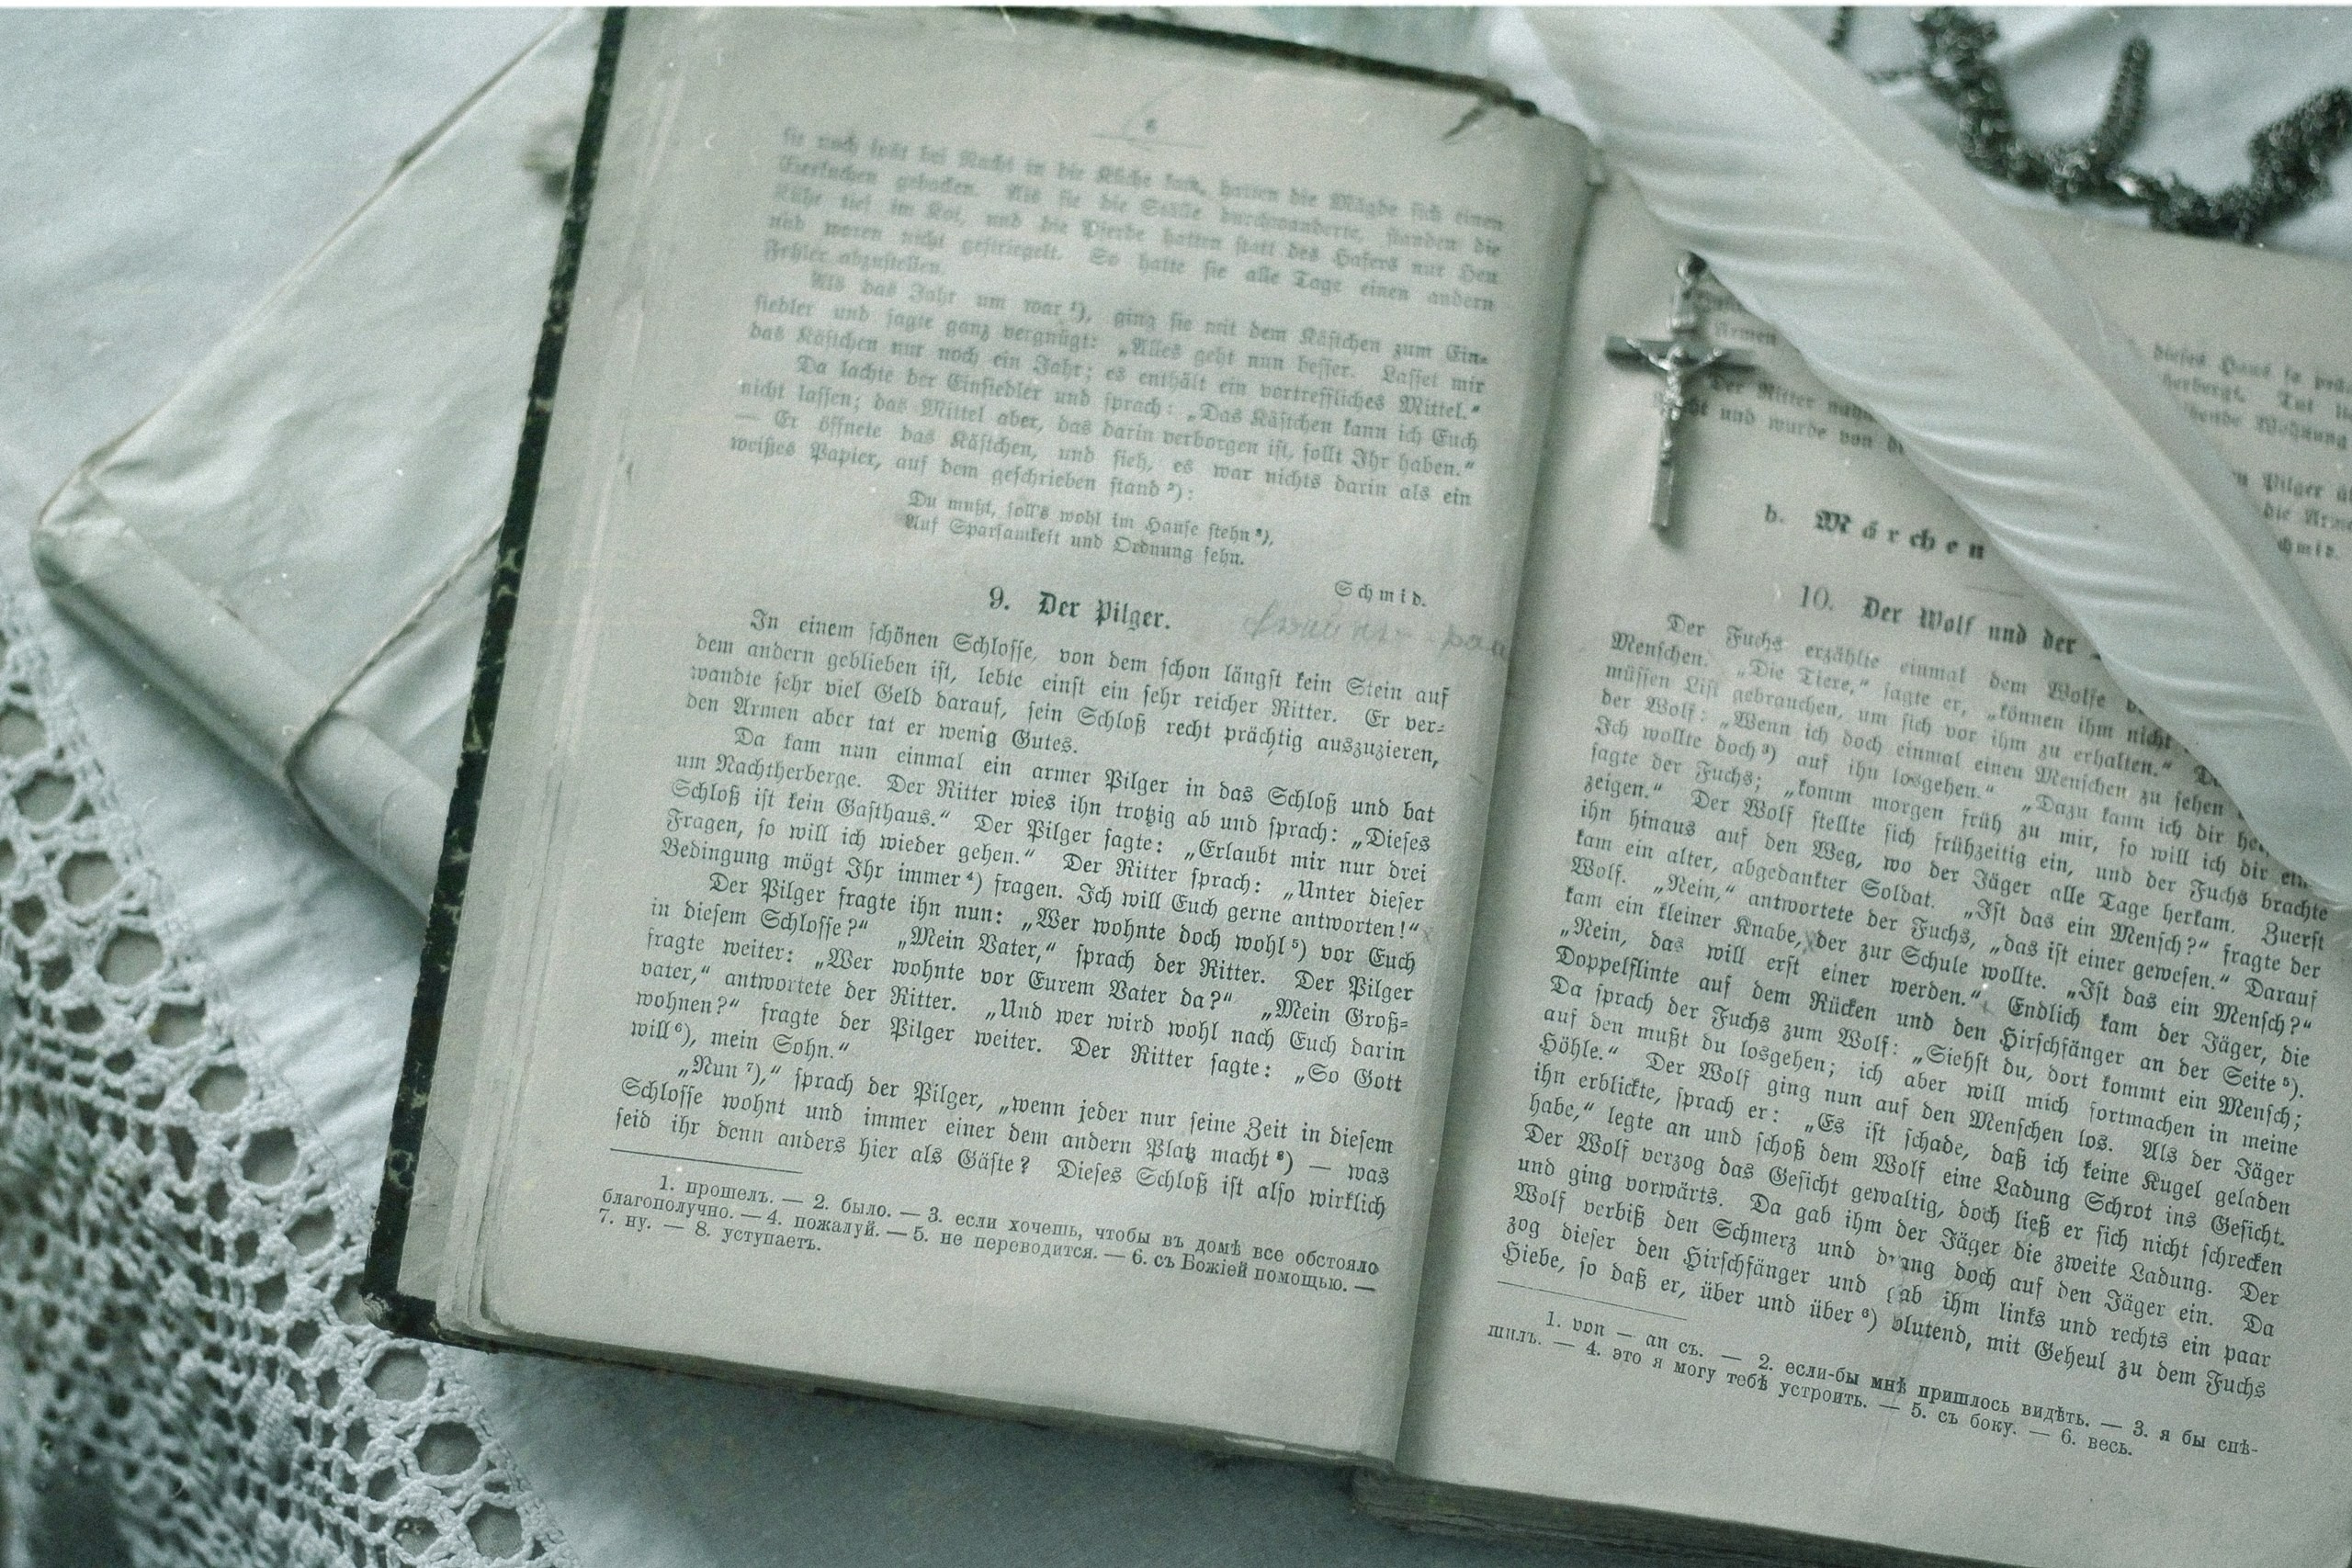 8
sie noch spät bei Nacht in die Küche kam, hatten die Mägde sich einen
Eierkuchen gebacken. Als sie die Ställe durchwanderte, standen die
Kühe tief im Kot, und die Pferde hatten statt des Hafers nur Heu
und waren nicht gestriegelt. So hatte sie alle Tage einen andern
Fehler abzustellen.
Als das Jahr um war ¹), ging sie mit dem Kästchen zum Ein-
siedler und sagte ganz vergnügt: „Alles geht nun besser. Lasset mir
das Kästchen nur noch ein Jahr; es enthält ein vortreffliches Mittel.“
Da lachte der Einsiedler und sprach: „Das Kästchen kann ich Euch
nicht lassen; das Mittel aber, das darin verborgen ist, sollt Ihr haben.“
— Er öffnete das Kästchen, und sieh, es war nichts darin als ein
weißes Papier, auf dem geschrieben stand ²):
Du mußt, soll's wohl im Hause stehn ³),
Auf Sparsamkeit und Ordnung sehn.
Schmid.
9. Der Pilger.
In einem schönen Schlosse, von dem schon längst kein Stein auf
dem andern geblieben ist, lebte einst ein sehr reicher Ritter. Er ver-
wandte sehr viel Geld darauf, sein Schloß recht prächtig auszuzieren,
den Armen aber tat er wenig Gutes.
Da kam nun einmal ein armer Pilger in das Schloß und bat
um Nachtherberge. Der Ritter wies ihn trotzig ab und sprach: „Dieses
Schloß ist kein Gasthaus.“ Der Pilger sagte: „Erlaubt mir nur drei
Fragen, so will ich wieder gehen.“ Der Ritter sprach: „Unter dieser
Bedingung mögt Ihr immer ⁴) fragen. Ich will Euch gerne antworten!“
Der Pilger fragte ihn nun: „Wer wohnte doch wohl ⁵) vor Euch
in diesem Schlosse?“ „Mein Vater,“ sprach der Ritter. Der Pilger
fragte weiter: „Wer wohnte vor Eurem Vater da?“ „Mein Groß-
vater,“ antwortete der Ritter. „Und wer wird wohl nach Euch darin
wohnen?“ fragte der Pilger weiter. Der Ritter sagte: „So Gott
will ⁶), mein Sohn.“
„Nun ⁷),“ sprach der Pilger, „wenn jeder nur seine Zeit in diesem
Schlosse wohnt und immer einer dem andern Platz macht ⁸) — was
seid ihr denn anders hier als Gäste? Dieses Schloß ist also wirklich
1. прошелъ. — 2. было. — 3. если хочешь, чтобы въ домѣ все обстояло
благополучно. — 4. пожалуй. — 5. не переводится. — 6. съ Божіей помощью. —
7. ну. — 8. уступаетъ.
dieses Haus so
herbergt. Tut
Wohnung
Armen
Der Ritter
und wurde von
Pilger
die
b. Märchen
10. Der Wolf und der
Der Fuchs erzählte einmal dem Wolfe
Menschen. „Die Tiere,“ sagte er, „können ihm nicht
müssen List gebrauchen, um sich vor ihm zu erhalten.“
der Wolf: „Wenn ich doch einmal einen Menschen zu sehen
Ich wollte doch ³) auf ihn losgehen.“ „Dazu kann ich dir
sagte der Fuchs; „komm morgen früh zu mir, so will ich dir
zeigen.“ Der Wolf stellte sich frühzeitig ein, und der Fuchs brachte
ihn hinaus auf den Weg, wo der Jäger alle Tage herkam. Zuerst
kam ein alter, abgedankter Soldat. „Ist das ein Mensch?“ fragte der
Wolf. „Nein,“ antwortete der Fuchs, „das ist einer gewesen.“ Darauf
kam ein kleiner Knabe, der zur Schule wollte. „Ist das ein Mensch?“
„Nein, das will erst einer werden.“ Endlich kam der Jäger, die
Doppelflinte auf dem Rücken und den Hirschfänger an der Seite ⁵).
Da sprach der Fuchs zum Wolf: „Siehst du, dort kommt ein Mensch;
auf den mußt du losgehen; ich aber will mich fortmachen in meine
Höhle.“ Der Wolf ging nun auf den Menschen los. Als der Jäger
ihn erblickte, sprach er: „Es ist schade, daß ich keine Kugel geladen
habe,“ legte an und schoß dem Wolf eine Ladung Schrot ins Gesicht.
Der Wolf verzog das Gesicht gewaltig, doch ließ er sich nicht schrecken
und ging vorwärts. Da gab ihm der Jäger die zweite Ladung. Der
Wolf verbiß den Schmerz und drang doch auf den Jäger ein. Da
zog dieser den Hirschfänger und gab ihm links und rechts ein paar
Hiebe, so daß er, über und über ⁶) blutend, mit Geheul zu dem Fuchs
1. von — an съ. — 2. если-бы мнѣ пришлось видѣть. — 3. я бы спѣ-
шилъ. — 4. это я могу тебѣ устроить. — 5. съ боку. — 6. весь.